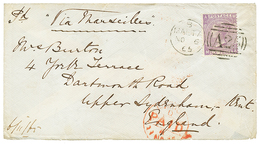 Pd "Via Marseilles"
Mrs Burton
4 York Terrace
Dartmouth Road
Upper Sydenham, Kent
England.
A25